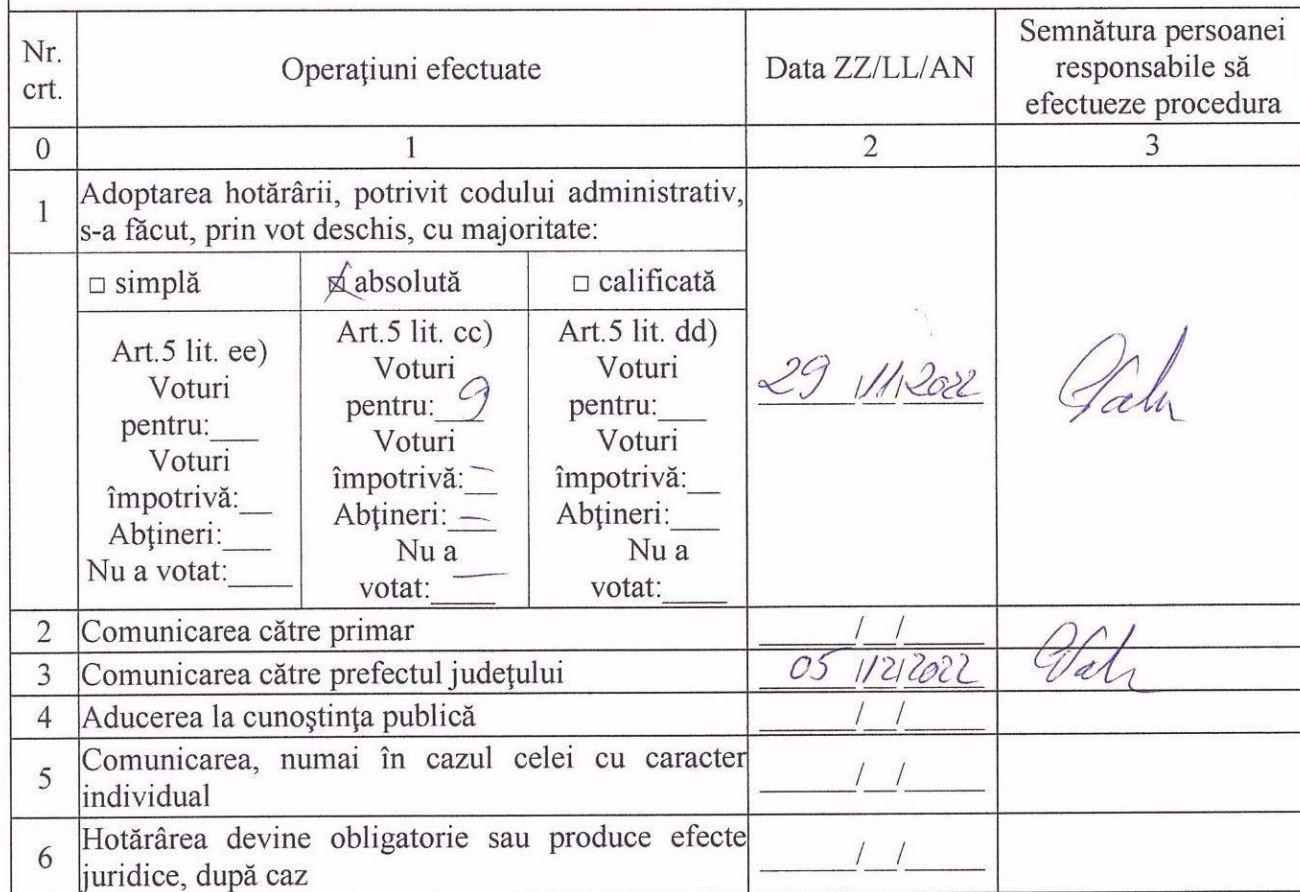 Nr. crt.
Operaţiuni efectuate
Data ZZ/LL/AN
Semnătura persoanei
responsabile să
efectueze procedura
0
1
2
3
1
Adoptarea hotărârii, potrivit codului administrativ,
s-a făcut, prin vot deschis, cu majoritate:
□ simplă
☒ absolută
□ calificată
Art.5 lit. ee)
Voturi
pentru:___
Voturi
împotrivă:__
Abţineri:___
Nu a votat:____
Art.5 lit. cc)
Voturi
pentru: 9
Voturi
împotrivă: –
Abţineri: –
Nu a
votat: –
Art.5 lit. dd)
Voturi
pentru:___
Voturi
împotrivă:__
Abţineri:___
Nu a
votat:____
29/11/2022
2
Comunicarea către primar
____/__/____
3
Comunicarea către prefectul judeţului
05/12/2022
4
Aducerea la cunoştinţa publică
____/__/____
5
Comunicarea, numai în cazul celei cu caracter
individual
____/__/____
6
Hotărârea devine obligatorie sau produce efecte
juridice, după caz
____/__/____